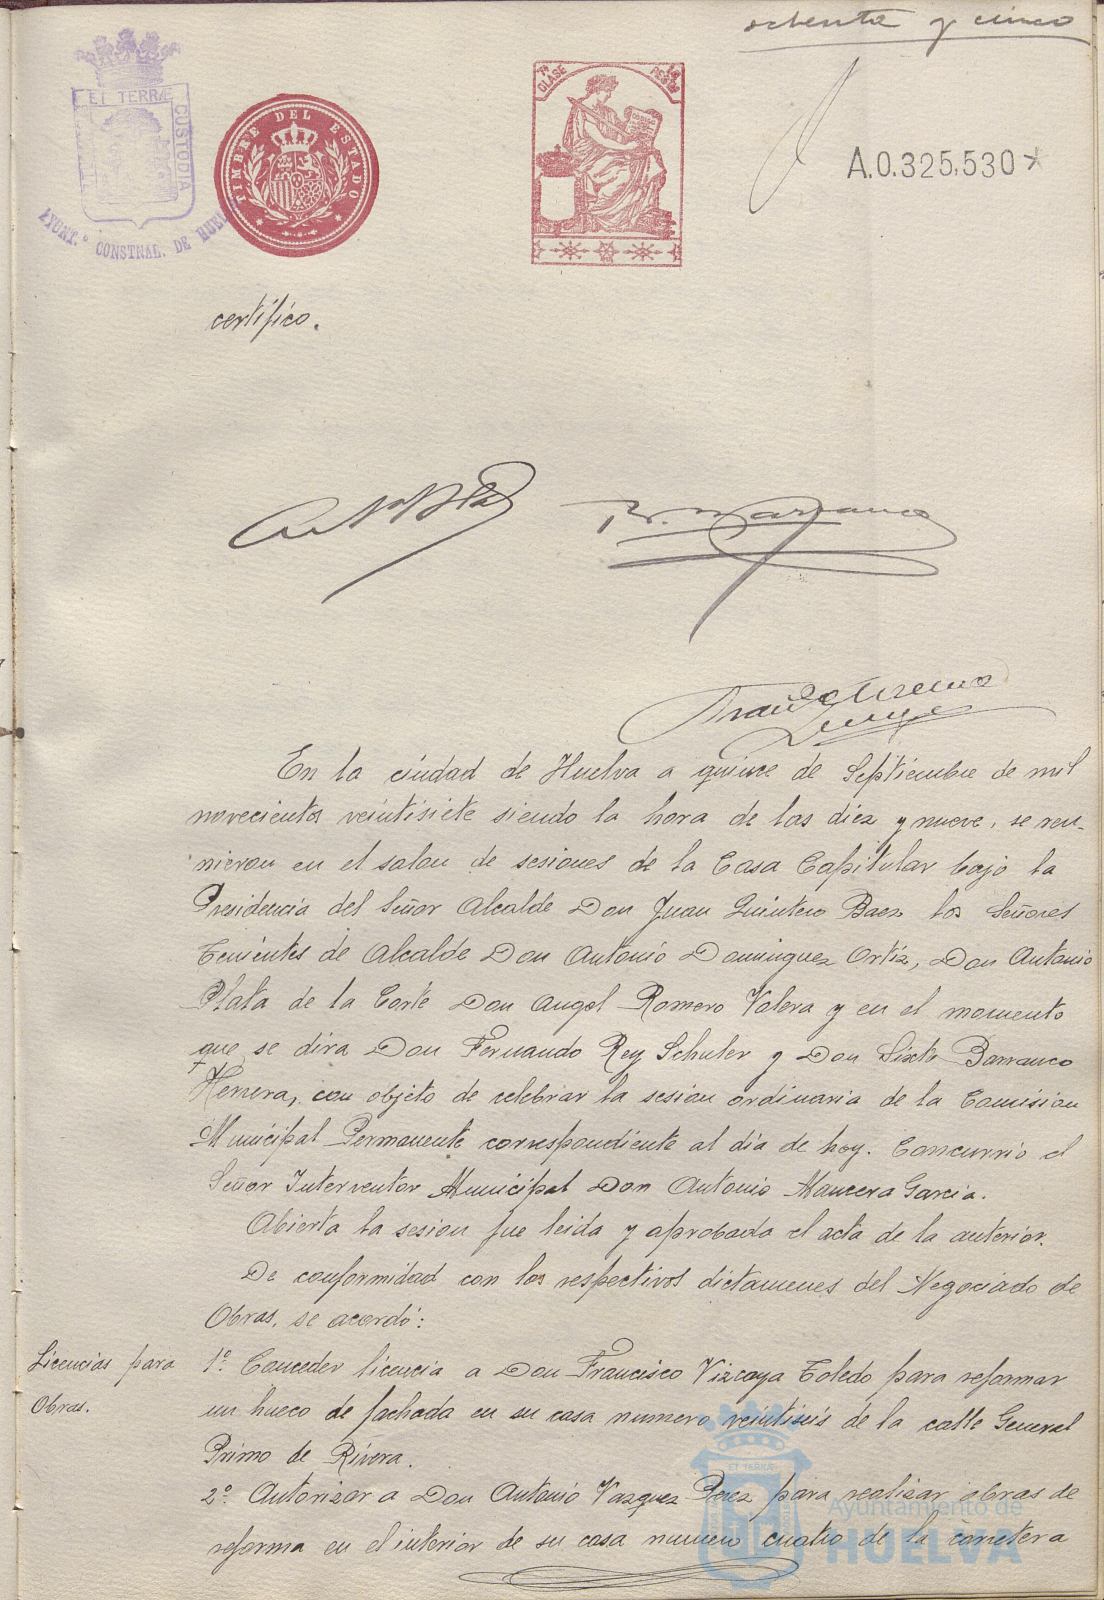 ochenta y cinco
ET TERRÆ
CUSTODIA
AYUNT.º CONSTNAL. DE HUEL
TIMBRE DEL ESTADO
7ª CLASE
PESTS
A.0.325.530*
certifico.
En la ciudad de Huelva a quince de Septiembre de mil
novecientos veintisiete siendo la hora de las diez y nueve, se reu-
nieron en el salon de sesiones de la Casa Capitular bajo la
Presidencia del Señor Alcalde Don Juan Quintero Baez los Señores
Tenientes de Alcalde Don Antonio Dominguez Ortiz, Don Antonio
Plata de la Corte Don Angel Romero Valera y en el momento
que se dira Don Fernando Rey Schuler y Don Sixto Barranco
Herrera, con objeto de celebrar la sesion ordinaria de la Comision
Municipal Permanente correspondiente al dia de hoy. Concurrio el
Señor Interventor Municipal Don Antonio Mancera Garcia.
Abierta la sesion fue leida y aprobada el acta de la anterior.
De conformidad con los respectivos dictamenes del Negociado de
Obras, se acordó:
Licencias para
Obras.
1º. Conceder licencia a Don Francisco Vizcaya Toledo para reformar
un hueco de fachada en su casa numero veintiseis de la calle General
Primo de Rivera.
2º. Autorizar a Don Antonio Vazquez Paez para realizar obras de
reforma en el interior de su casa numero cuatro de la carretera
Ayuntamiento de
HUELVA